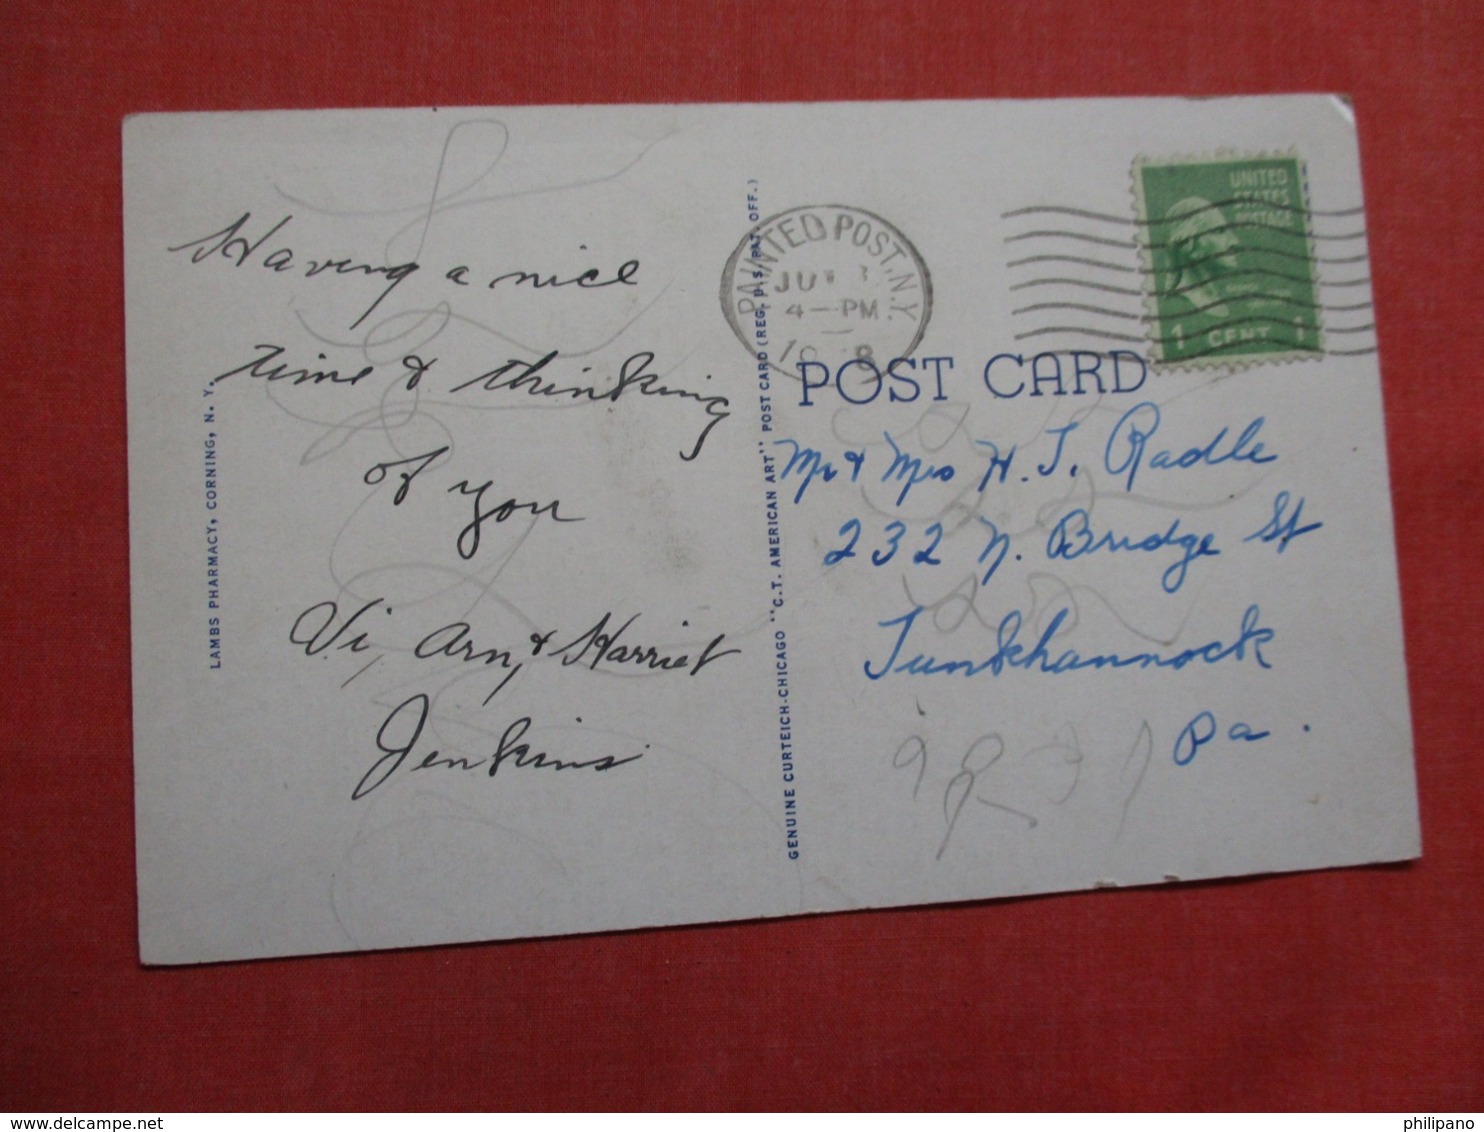 Having a nice
time & thinking
of you
Vi, Arn, & Harriet
Jenkins
LAMBS PHARMACY, CORNING, N. Y.
GENUINE CURTEICH-CHICAGO "C.T. AMERICAN ART" POST CARD (REG. U.S. PAT. OFF.)
PAINTED POST, N.Y.
4-PM
UNITED
STATES
POSTAGE
1 CENT 1
POST CARD
Mr & Mrs H. J. Radle
232 N. Bridge St
Tunkhannock
Pa.
philipano